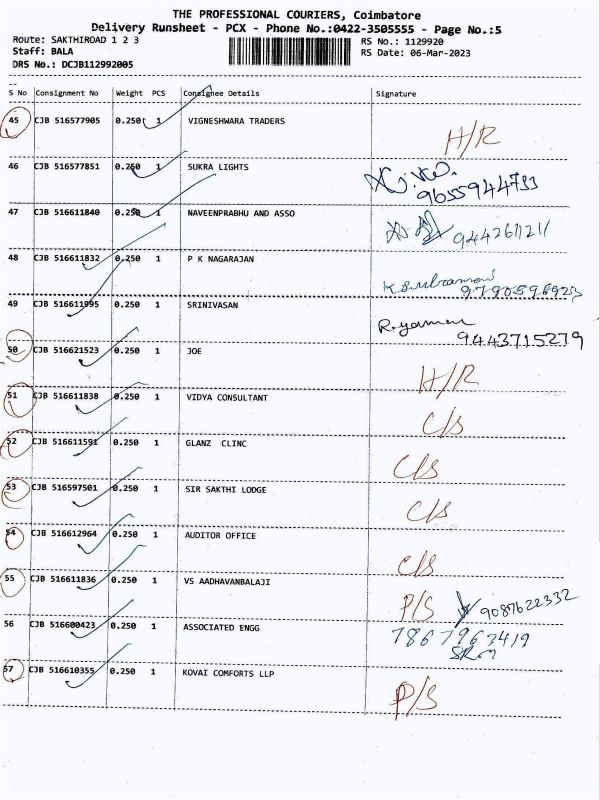 THE PROFESSIONAL COURIERS, Coimbatore
Delivery Runsheet - PCX - Phone No.:0422-3505555 - Page No.:5
Route: SAKTHIROAD 1 2 3
RS No.: 1129920
Staff: BALA
RS Date: 06-Mar-2023
DRS No.: DCJB112992005
S No Consignment No Weight PCS Consignee Details Signature
45 CJB 516577905 0.250 1 VIGNESHWARA TRADERS H/R
46 CJB 516577851 0.250 1 SUKRA LIGHTS
9655944733
47 CJB 516611840 0.250 1 NAVEENPRABHU AND ASSO
48 CJB 516611832 0.250 1 P K NAGARAJAN
49 CJB 516611995 0.250 1 SRINIVASAN
9443715279
50 CJB 516621523 0.250 1 JOE H/R
51 CJB 516611838 0.250 1 VIDYA CONSULTANT C/S
52 CJB 516611591 0.250 1 GLANZ CLINC C/S
53 CJB 516597501 0.250 1 SIR SAKTHI LODGE C/S
54 CJB 516612964 0.250 1 AUDITOR OFFICE C/S
55 CJB 516611836 0.250 1 VS AADHAVANBALAJI P/S 9087622332
56 CJB 516600423 0.250 1 ASSOCIATED ENGG 7867963419
57 CJB 516610355 0.250 1 KOVAI COMFORTS LLP P/S